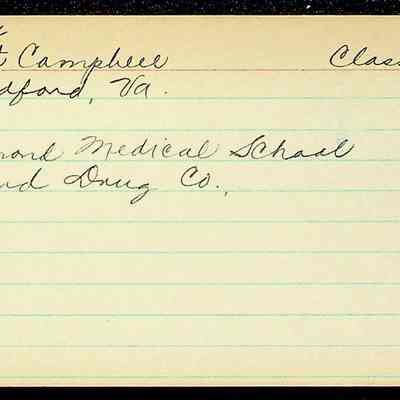 t Campbell Class
dford, Va.
mond Medical School
nd Drug Co.,